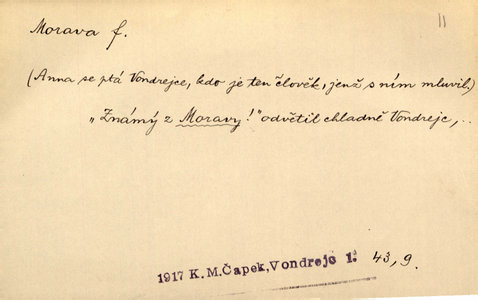 11
Morava f.
(Anna se ptá Vondrejce, kdo je ten člověk, jenž s ním mluvil.)
„Známý z Moravy!" odvětil chladně Vondrejc, ..
1917 K.M.Čapek, Vondrejc 1. 43, 9.